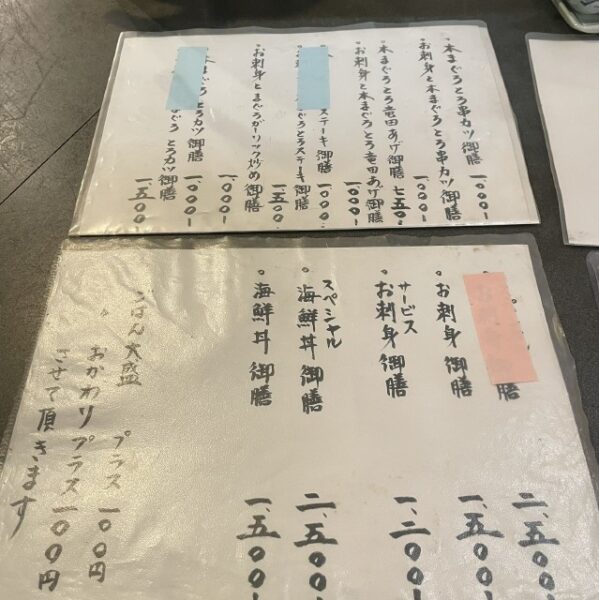 。本まぐろとろ串カツ御膳 一、〇〇〇-
。お刺身と本まぐろとろ串カツ御膳 一、〇〇〇-
。本まぐろとろ竜田あげ御膳 七五〇-
。お刺身と本まぐろとろ竜田あげ御膳 一、〇〇〇-
ステーキ御膳 一、〇〇〇-
。お刺 ぐろとろステーキ御膳 一、五〇〇-
。お刺身とまぐろガーリック炒め御膳 一、〇〇〇-
本まぐろとろカツ御膳 一、〇〇〇-
まぐろとろカツ御膳 一、五〇〇-
御膳 二、五〇〇-
。お刺身 御膳 一、五〇〇-
サービス
。お刺身御膳 一、二〇〇-
スペシャル
。海鮮丼御膳 二、五〇〇-
。海鮮丼 御膳 一、五〇〇-
ごはん大盛 プラス一〇〇円
〃 おかわりプラス一〇〇円
させて頂きます